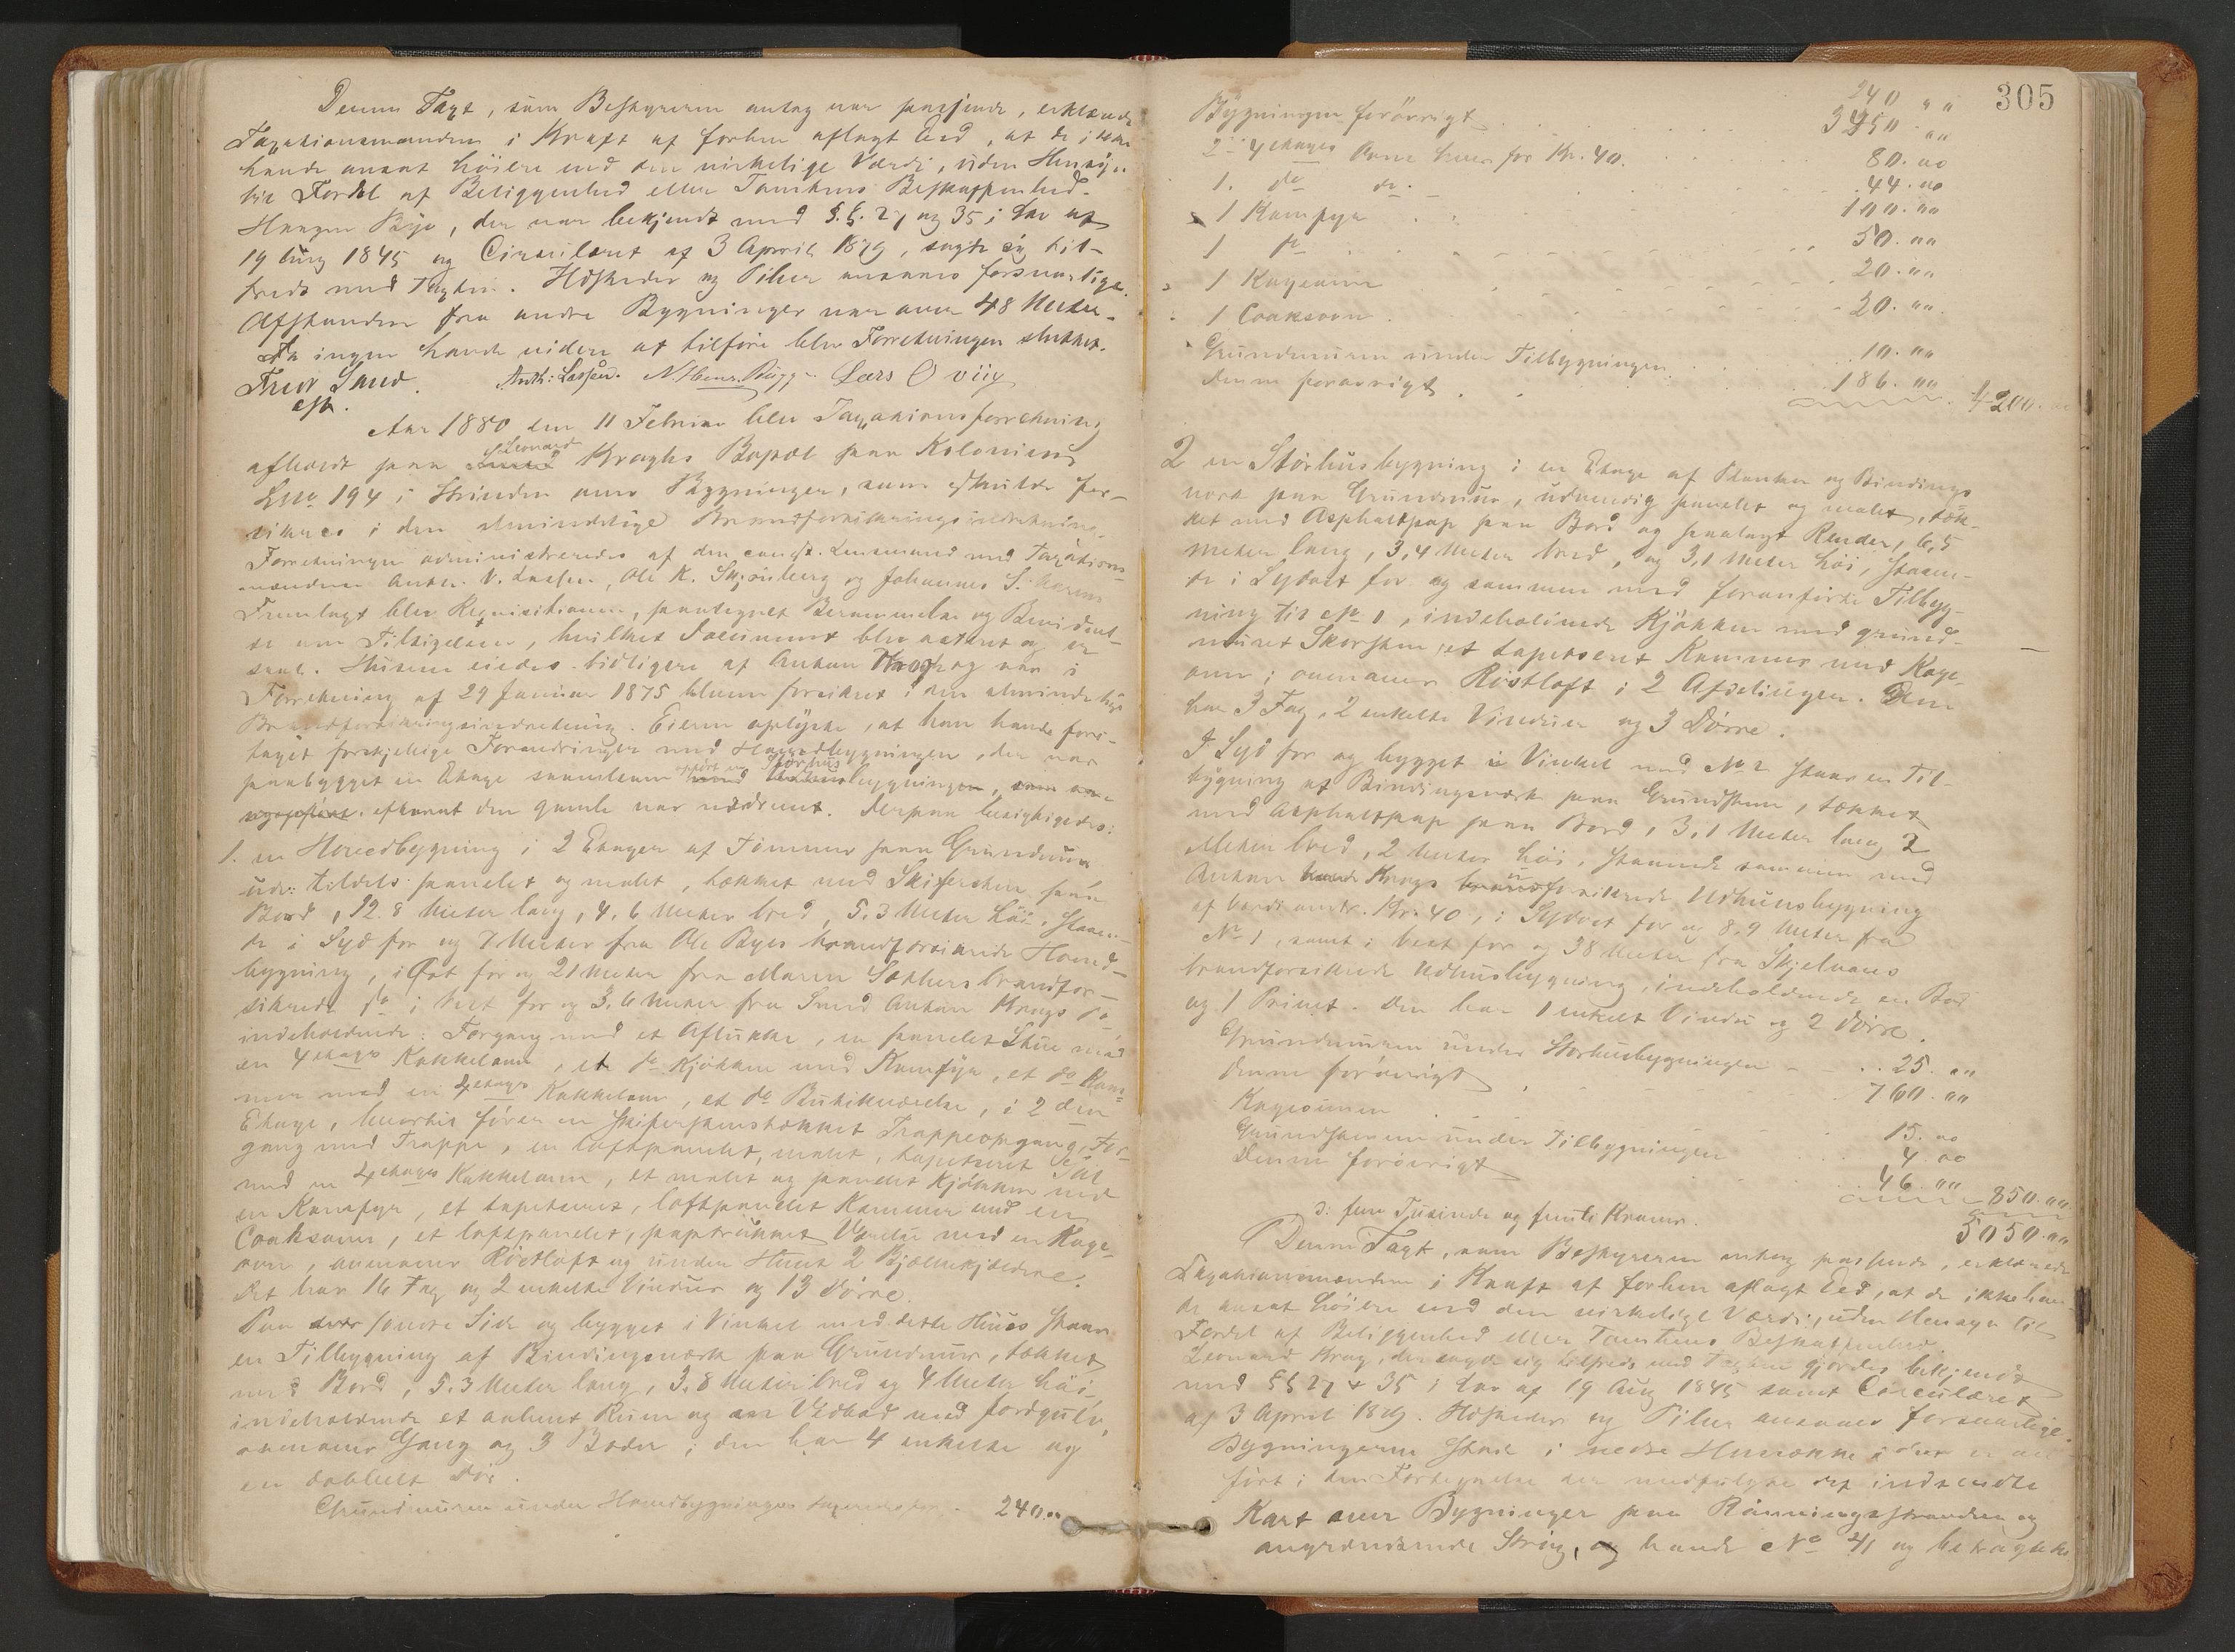 Denne Taxt, som Bestyreren antog var passende, erklærede
Taxationsmændene i Kraft af forhen aflagt Eed, at de ikke
havde ansat höiere end den virkelige Værdi, uden Hensyn
til Fordel af Beliggenhed eller Tomtens Beskaffenhed.
Haagen Bye, der var bekjendt med §.§. 27 og 35 i Lov af
19 Aug 1845 og Circulæret af 3 April 1879, sagde sig til-
freds med Taxten. Ildsteder og Piber ansaaes forsvarlige.
Afstanden fra andre Bygninger var over 48 Meter.
Da ingen havde videre at tilföie blev Forretningen sluttet.
Fredr Sand. Anth: Lassen. N. Hans. Bugge Lars Oviig
cst.
Aar 1880 den 11 Februar blev Taxationsforretning
afholdt paa Leonard Kraghs Bopæl paa Kolonien
LNo 194 i Strinden over Bygninger, som ønskedes for-
sikres i den almindelige Brandforsikringsindretning.
Forretningen administreredes af den const. Lensmand med Taxations-
mændene Anthon V. Lassen, Ole K. Skjönberg og Johannes S.
Fremlagt blev Requisitionen, paategnet Berammelse og Bevidnel-
se om Tilsigelsen, hvilket Document blev oplæst og er
saal. Husene eiedes tidligere af Anton Krogh og var i
Forretning af 29 Januar 1875 bleven forsikret i den almindelige
Brandforsikringsindretning. Eieren oplyste, at han havde fore-
taget forskjellige Forandringer med Hovedbygningen, der var
paabygget en Etage saavelsom opfört en Storhusbygning,
efterat den gamle var nedrevet. Derpaa besigtigedes:
1. en Hovedbygning i 2 Etager af Tömmer paa Grundmuur
udv: tildels panelet og malet, tækket med Skifersten paa
Bord, 12.8 Meter lang, 4.6 Meter bred, 5.3 Meter höi, staaen-
de i Syd for og 7 Meter fra Ole Byes brandforsikrede Hoved-
bygning, i Öst for og 21 Meter fra Maren Sakkers brandfor-
sikrede do i Vest for og 3.6 Meter fra Smed Anton Krogs do
indeholdende: Forgang med et Aflukke, en panelet Stue med
en 4 etages Kakkelovn, et do Kjökken med Komfyr, et do Kam-
mer med en 4 etages Kakkelovn, et do Butikværelse, i 2 den
Etage, hvortil förer en skiferstenstækket Trappeopgang, For-
gang med Trappe, en loftpanelet, malet, tapetseret Sal
med en 4 etages Kakkelovn, et malet og panelet Kjökken med
en Komfyr, et tapetseret, loftpanelet Kammer med en
Coaksovn, et loftpanelet, paptrukket Værelse med en Kage-
ovn, ovenover Röstloft og under Huset 2 Bjelkekjældere.
Det har 16 Fag og 2 enkelte Vinduer og 13 Dörre.
Paa søndre Side og bygget i Vinkel med dette Huus staar
en Tilbygning af Bindingsverk paa Grundmuur, tækket
med Bord, 5.3 Meter lang, 3.8 Meter bred og 4 Meter höi,
indeholdende et aabent Rum og en Vedbod med Jordgulv,
ovenover Gang og 3 Boder; den har 4 enkelte og
en dobbelt Dör.
Grundmuren under Hovedbygningen taxeredes for . 240.00
305
240 „ „
Bygningen forövrigt 3450 „„
2 - 4 etages Ovne hver for Kr. 40. 80. 00
1. do do. 44. 00
1 Komfyr 100. 00
1 do 50. 00
1 Kageovn 20. 00
1 Coaksovn. 20. 00
Grundmuren under Tilbygningen 10. 00
Denne forövrigt 186. 00 4200.00
2 en Storhusbygning i en Etage af Planker og Bindings-
verk paa Grundmuur, udvendig panelet og malet, tæk-
ket med Asphaltpap paa Bord og paalagt Render, 6,5
Meter lang, 3,4 Meter bred, og 3,1 Meter höi, staaen-
de i Sydvest for og sammen med foranførte Tilbyg-
ning til No 1, indeholdende Kjökken med grund-
muret Skorsten, et tapetseret Kammer med Kage-
ovn; ovenover Röstloft i 2 Afdelinger. Den
har 3 Fag, 2 enkelte Vinduer og 3 Dörre.
I Syd for og bygget i Vinkel med No 2 staar en Til-
bygning af Bindingsverk paa Grundsten, tækket
med Asphaltpap paa Bord, 3,1 Meter lang 2
Meter bred, 2 Meter höi, staaende sammen med
Anton Krogs uforsikrede Udhuusbygning
af Værdi omtr. Kr. 40, i Sydvest for og 8.9 Meter fra
No 1, samt i Vest for og 38 Meter fra Skjelvans
brandforsikrede Udhusbygning, indeholdende en Bod
og 1 Privet. Den har 1 enkelt Vindu og 2 Dörre.
Grundmuren under Storhusbygningen 25. „„
Denne forövrigt 760. „„
Kageovnen 15. 00
Grundstenene under Tilbygningen 4. 00
Denne forövrigt 46. „„ 850. „„
5050. „„
3: fem Tusinde og femti Kroner.
Denne Taxt, som Bestyreren antog passende, erklærede
Taxationsmændene i Kraft af forhen aflagt Eed, at de ikke hav-
de ansat höiere end den virkelige Værdi, uden Hensyn til
Fordel af Beliggenhed eller Tomtens Beskaffenhed.
Leonard Krog, der sagde sig tilfreds med Taxten gjordes bekjendt
med §§ 27 & 35 i Lov af 19 Aug 1845 samt Circulæret
af 3 April 1879. Ildsteder og Piber ansaaes forsvarlige.
Bygningerne staar i nedre Husrække i der er an-
fört i den Fortegnelse der medfulgte det indsendte
Kart over Bygninger paa Rönningsstranden og
angrændsende Strög, og havde No 41 og betragtes